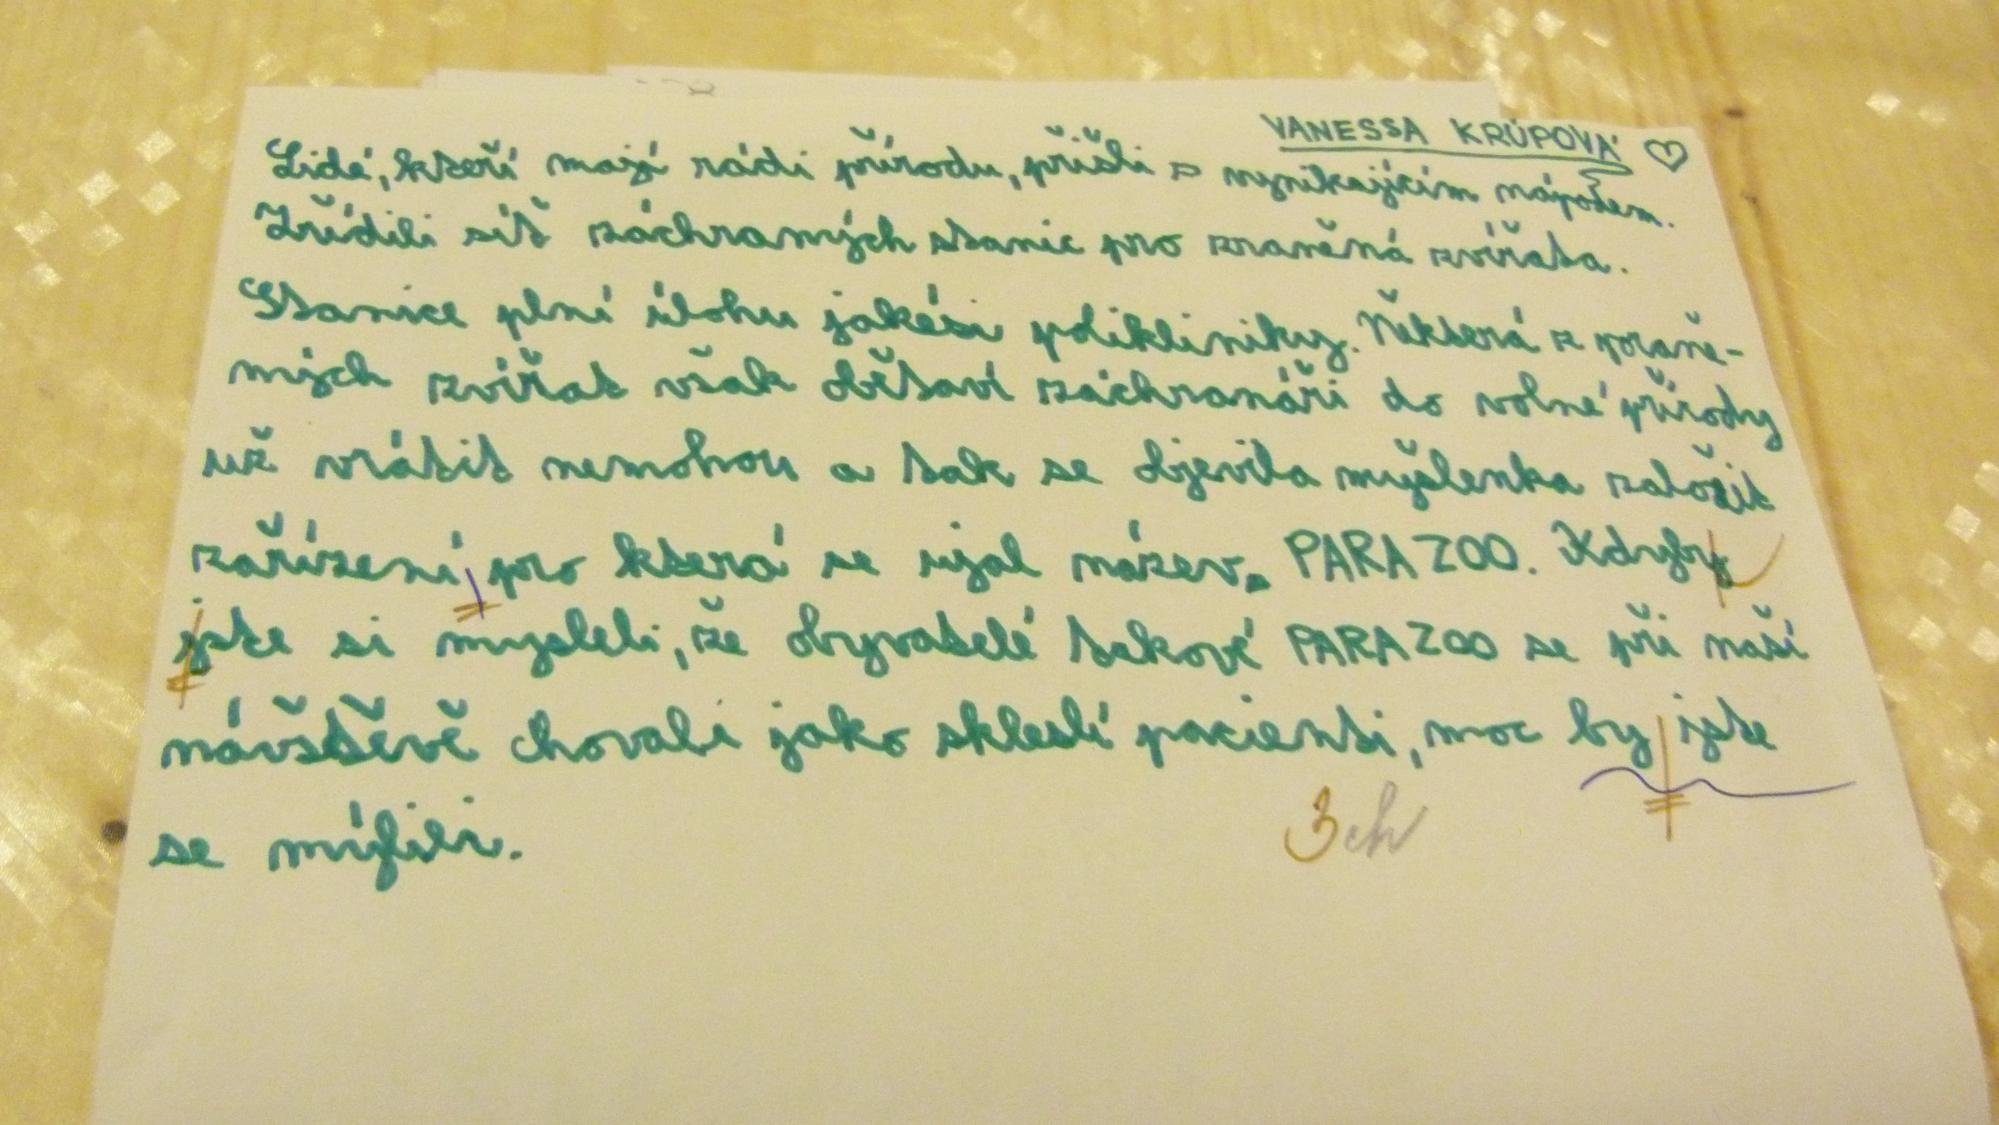 VANESSA KRÚPOVÁ ♡
Lidé, kteří mají rádi přírodu, přišli s vynikajícím nápadem.
Zřídili síť záchraných stanic pro zraněná zvířata.
Stanice plní úlohu jakési polikliniky. Některá z poraně-
ných zvířat však obětaví záchranáři do volné přírody
už vrátit nemohou a tak se objevila myšlenka založit
zařízení, pro která se ujal název PARAZOO. Kdyby
jste si mysleli, že obyvatelé takové PARAZOO se při naší
návštěvě chovali jako skleslí pacienti, moc by jste
se mýlili.
3ch